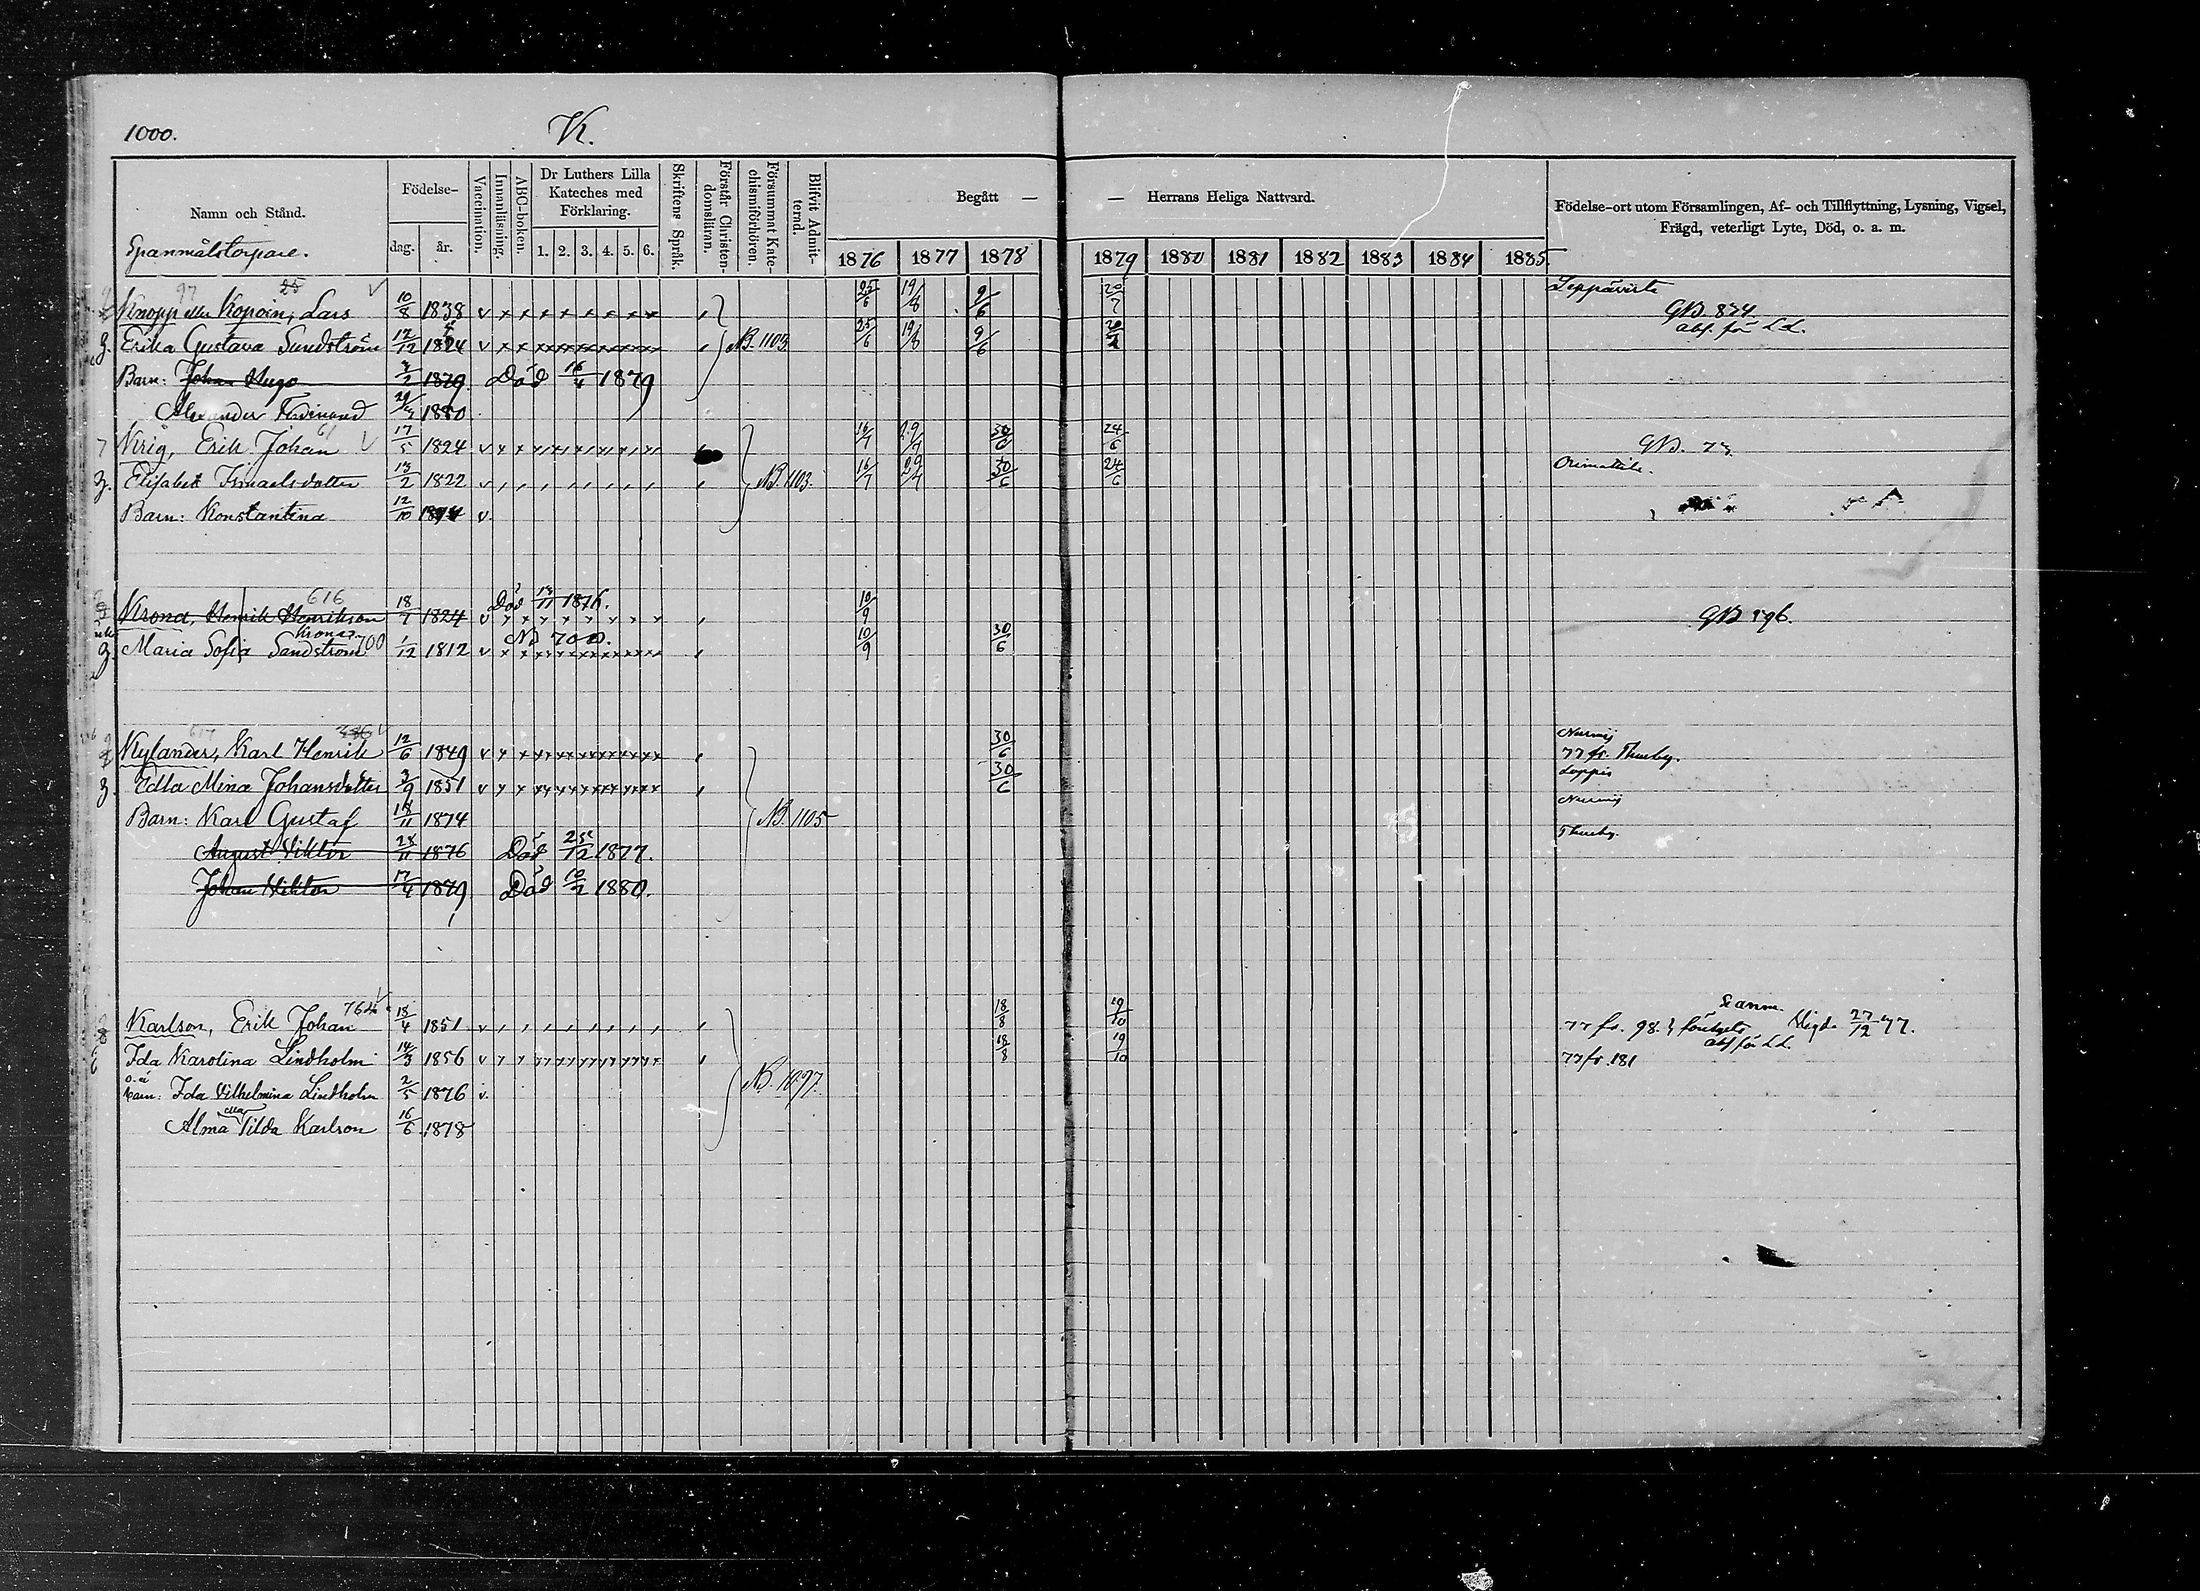 1000. K.
Namn och Stånd. Födelse- Vaccination. Innanläsning. ABC-boken. Dr Luthers Lilla Kateches med Förklaring. Skriftens Språk. Förstår Christendomsläran. Försummat Katechismiförhören. Blifvit Admitternd. Begått — — Herrans Heliga Nattvard. Födelse-ort utom Församlingen, Af- och Tillflyttning, Lysning, Vigsel, Frägd, veterligt Lyte, Död, o. a. m.
Spanmålstorpare. dag. år. 1. 2. 3. 4. 5. 6. 1876 1877 1878 1879 1880 1881 1882 1883 1884 1885.
97 25
Knopp eller Kopoin, Lars 10/8 1838 25/6 19/8 9/6 20/7 Leppävirta GB. 834
Erika Gustava Sundström 12/12 1824 NB. 1103 25/6 19/8 9/6 abf. för L.L.
Barn: Johan Hugo 1879 Död 16/4 1879
Alexander Ferdinand 1880
61
Krig, Erik Johan 17/5 1824 16/7 29/7 30/6 24/6 GB. 73
Elisabet Ismaelsdotter 13/2 1822 NB. 1103. 16/7 29/7 30/6 24/6 Orimatila.
Barn: Konstantina 12/10 v.
616 Död 13/11 1876.
Krona, Henrik Henrikson 18/7 1824 10/9 GB 596.
Kronas 700 NB 700.
Maria Sofia Sandström 1/12 1812 10/9 30/6
617
Kylander, Karl Henrik 12/6 1849 30/6 Nurmij 77 fr. Thusby.
Edla Mina Johansdotter 3/9 1851 30/6 Loppis
Barn: Karl Gustaf 18/11 1874 NB. 1105 Nurmij
August Viktor 28/11 1876 Död 25/12 1877. Thusby.
Johan Viktor 17/4 1879 Död 10/2 1880.
764
Karlson, Erik Johan 18/4 1851 18/8 19/10 77 fr. 98. Vigda 27/12 77.
Ida Karolina Lindholm 14/3 1856 18/8 19/10 77 fr. 181 abf för L.L.
o.ä. barn: Ida Vilhelmina Lindholm 2/5 1876 v. NB. 1097.
Alma eller Tilda Karlson 16/6 1878